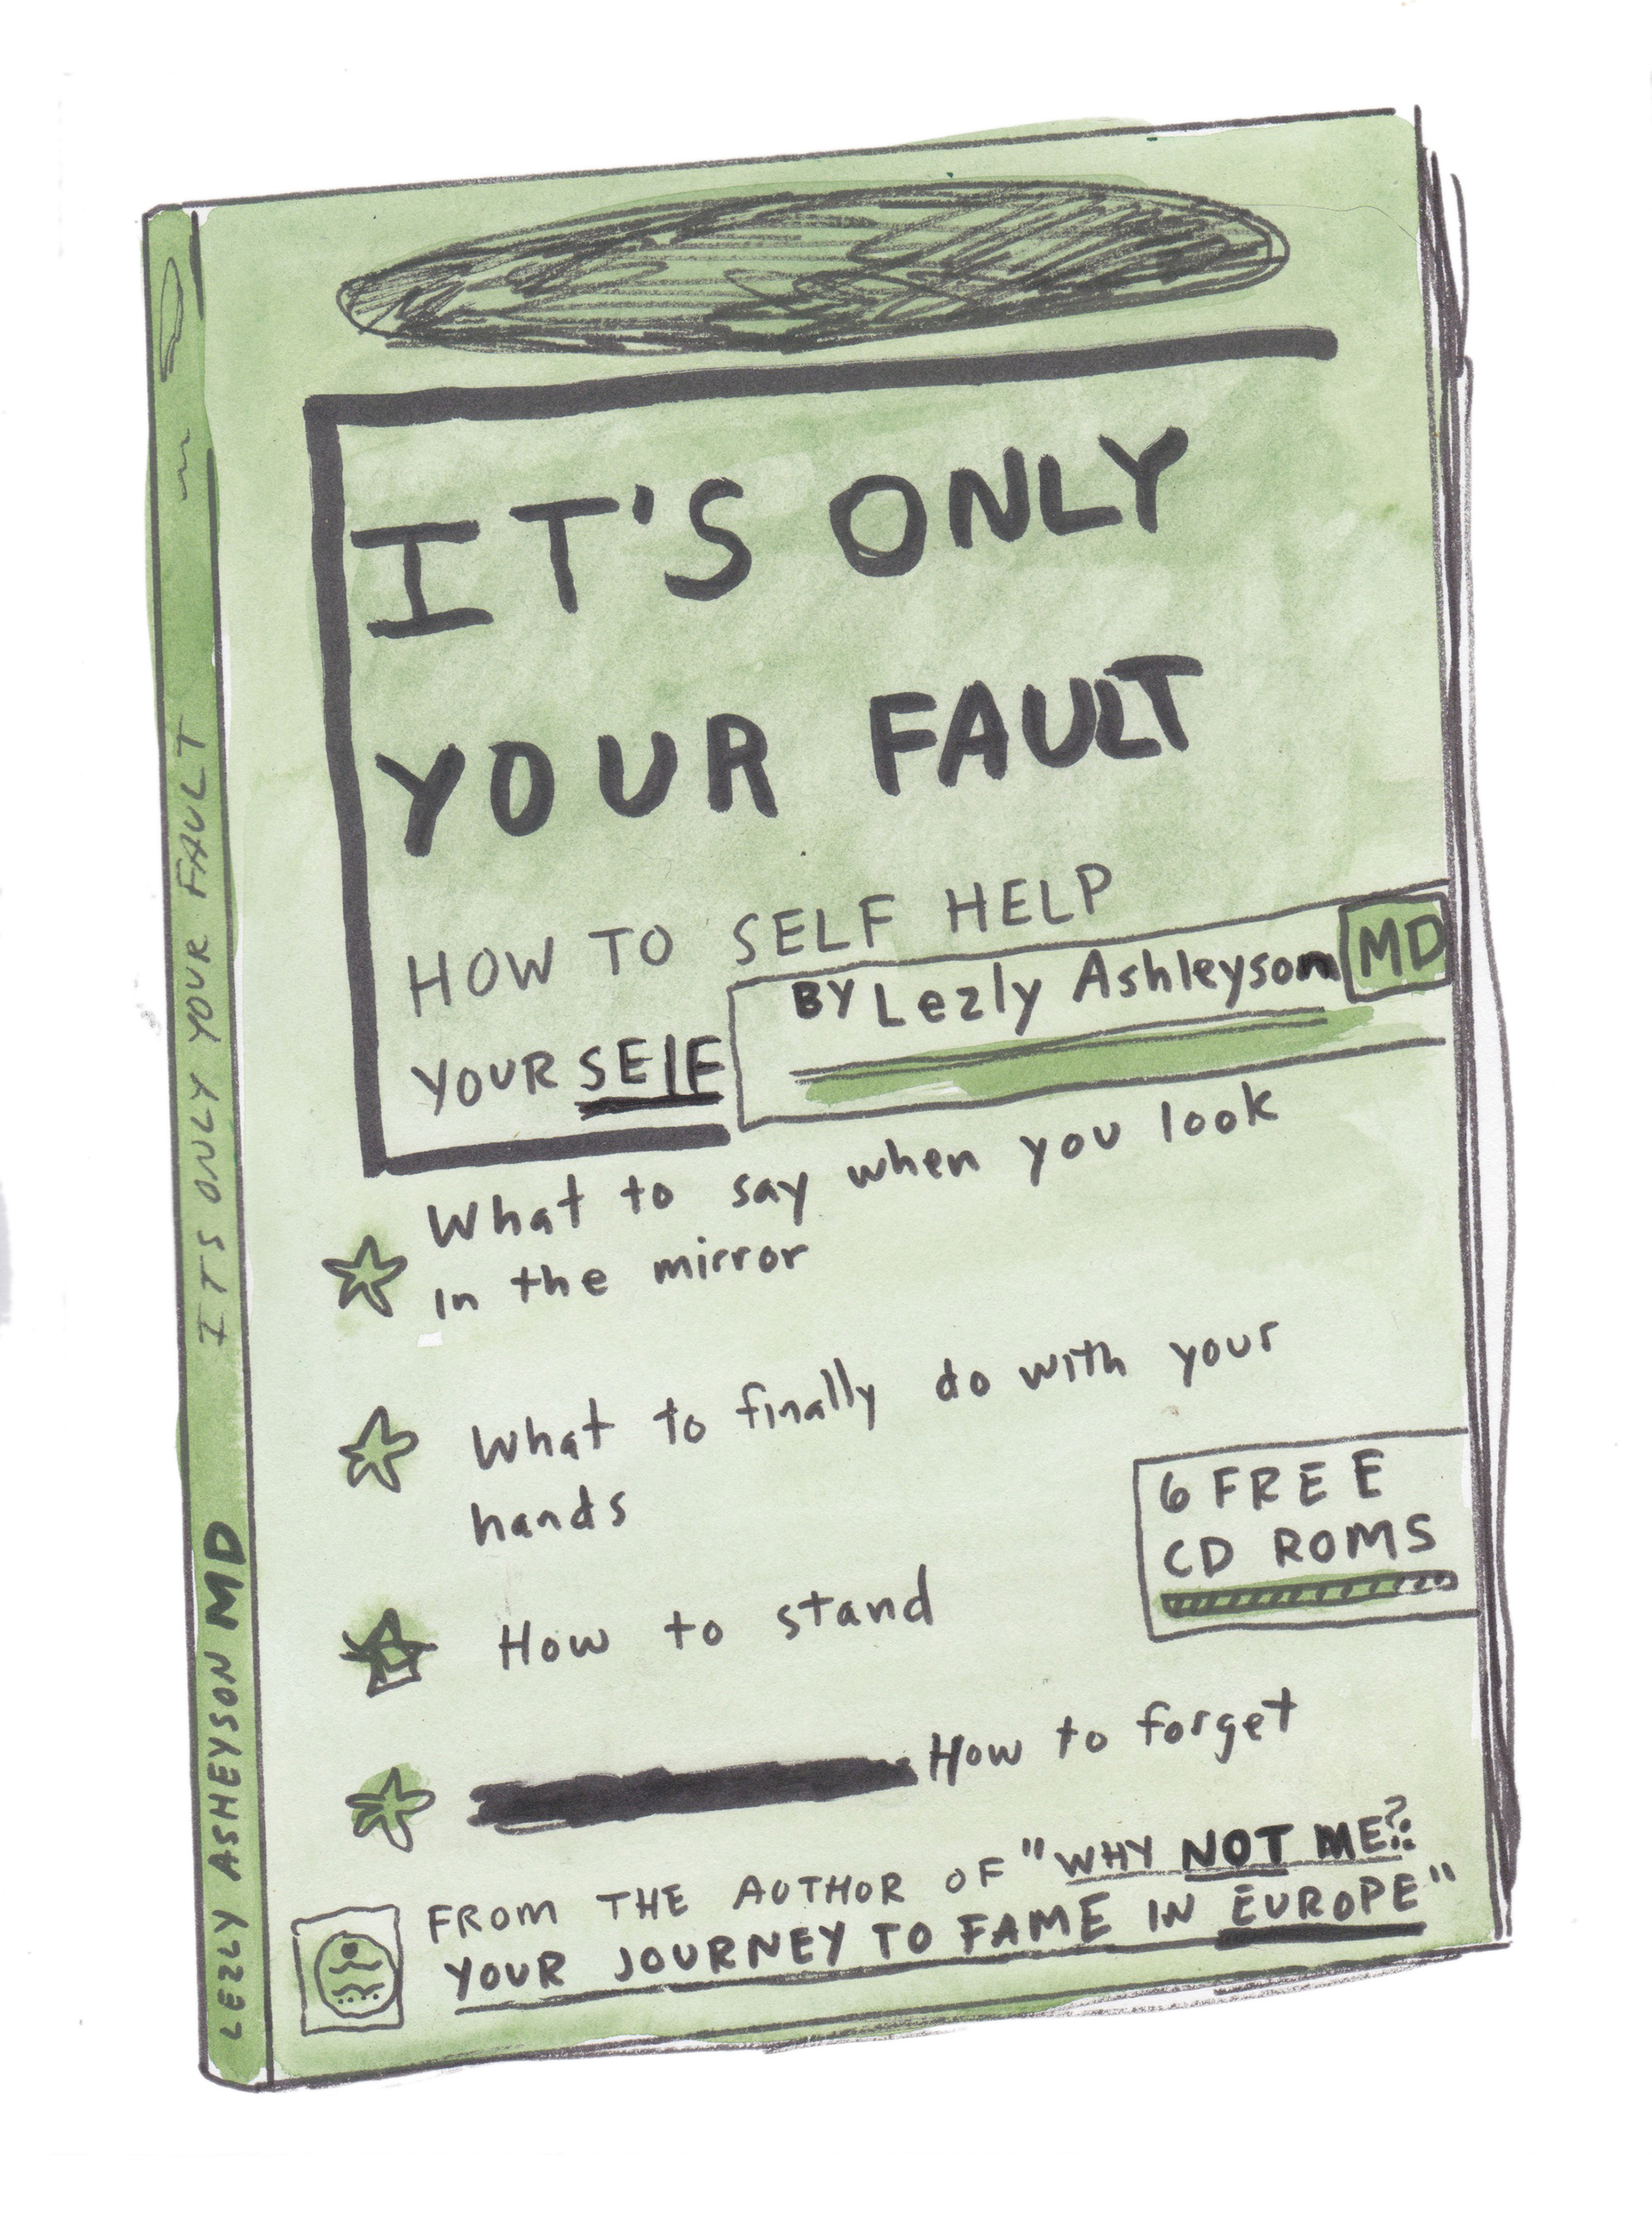 IT'S ONLY
YOUR FAULT
HOW TO SELF HELP
YOURSELF
BY Lezly Ashleyson MD
What to say when you look
in the mirror
What to finally do with your
hands
6 FREE
CD ROMS
How to stand
How to forget
FROM THE AUTHOR OF "WHY NOT ME?:
YOUR JOURNEY TO FAME IN EUROPE"
LEZLY ASHEYSON MD ITS ONLY YOUR FAULT